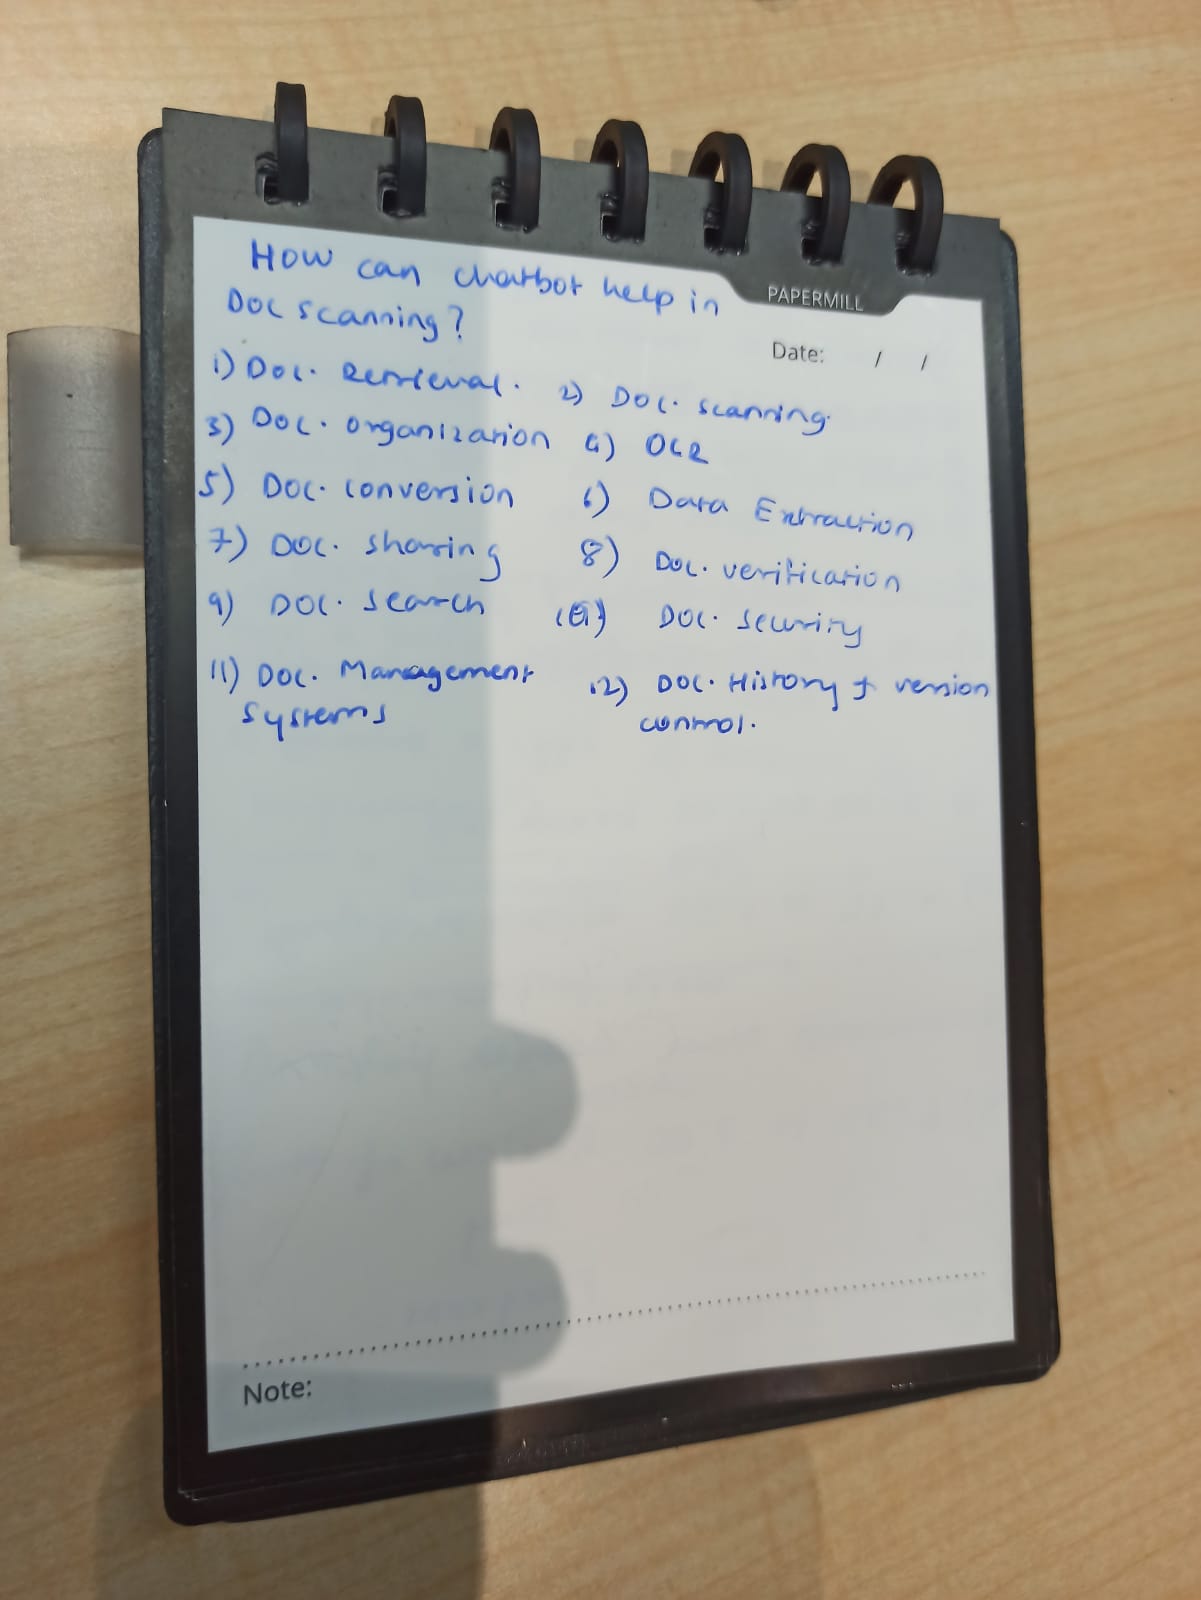 How can chatbot help in
Doc scanning?
PAPERMILL
Date: / /
1) Doc. Retrieval. 2) Doc. scanning.
3) Doc. organization 4) OCR
5) Doc. conversion 6) Data Extraction
7) Doc. sharing 8) Doc. verification
9) Doc. search 10) Doc. security
11) Doc. Management 12) Doc. History & version
systems control.
Note: